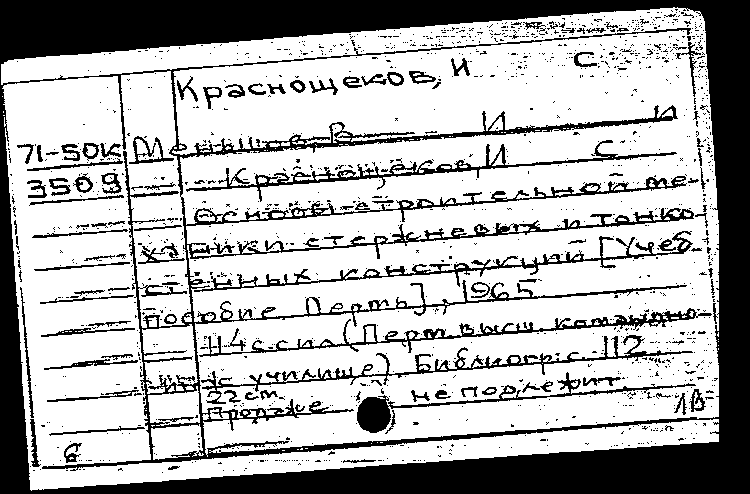 Краснощеков, И С
71-50к Меньшов, В И И
3509 Краснощеков, И С
Основы строительной ме-
ханики стержневых и тонко-
стенных конструкций [Учеб.
пособие. Пермь], 1965
114с с ил (Перм. высш. командно-
инж училище). Библиогр: с. 112.
22 см.
Продаже не подлежит.
1В
6